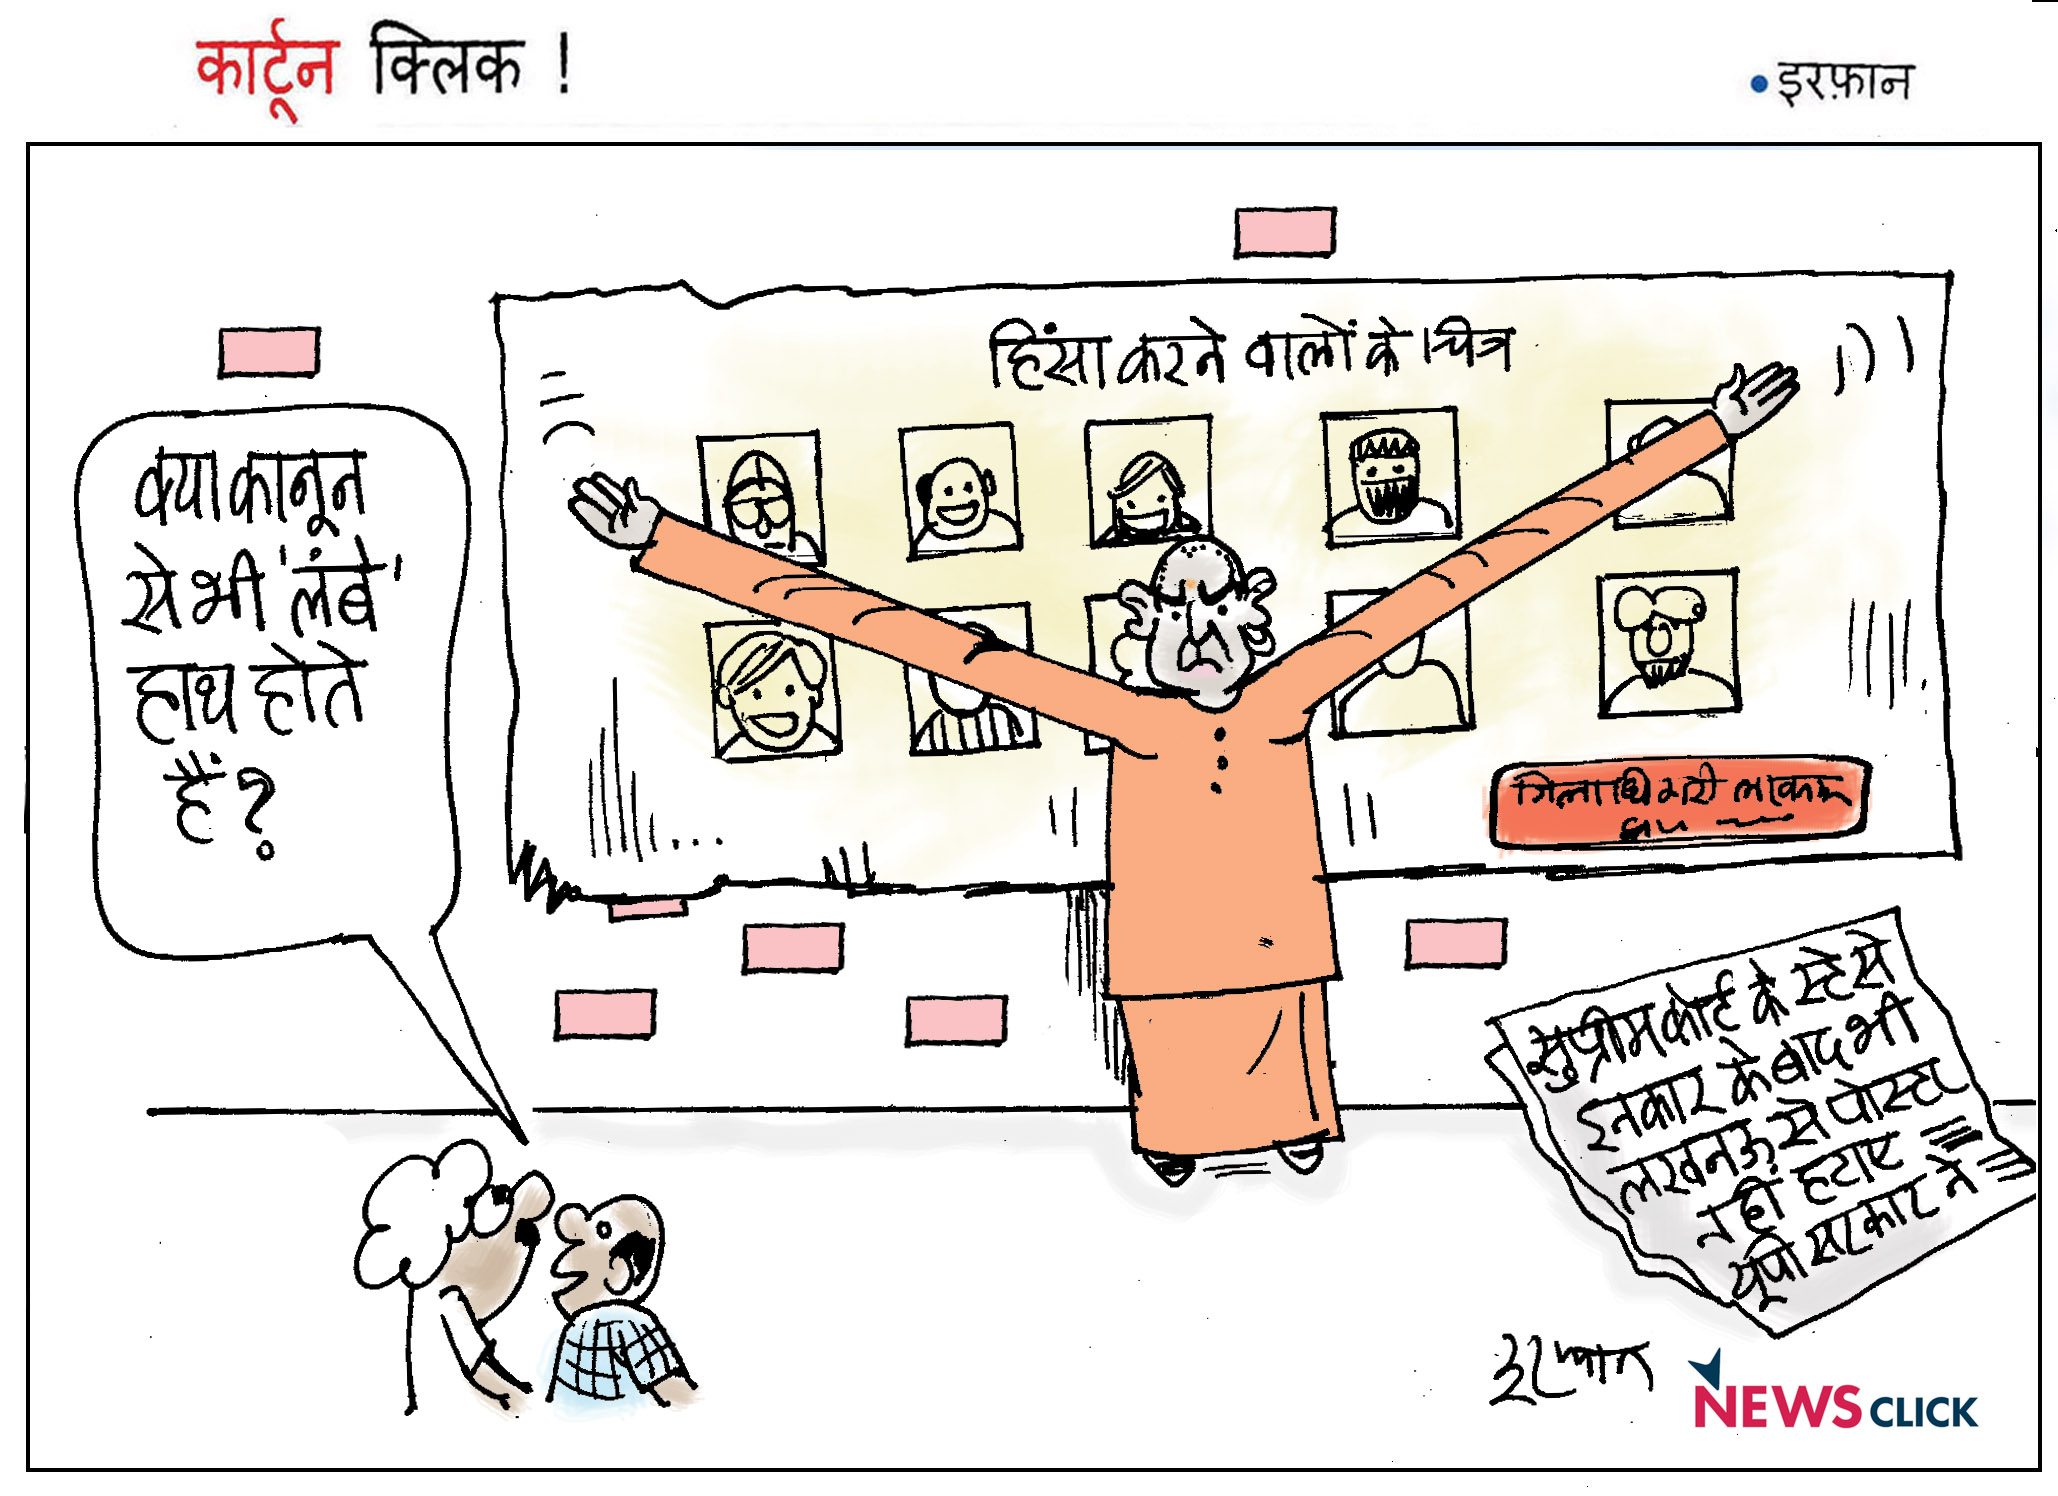 कार्टून क्लिक !
• इरफ़ान
हिंसा करने वालों के चित्र
क्या कानून
से भी 'लंबे'
हाथ होते
हैं?
सुप्रीम कोर्ट के स्टे से
इनकार के बाद भी
लखनऊ से पोस्टर
नहीं हटाए
यूपी सरकार ने
इरफान
NEWSCLICK